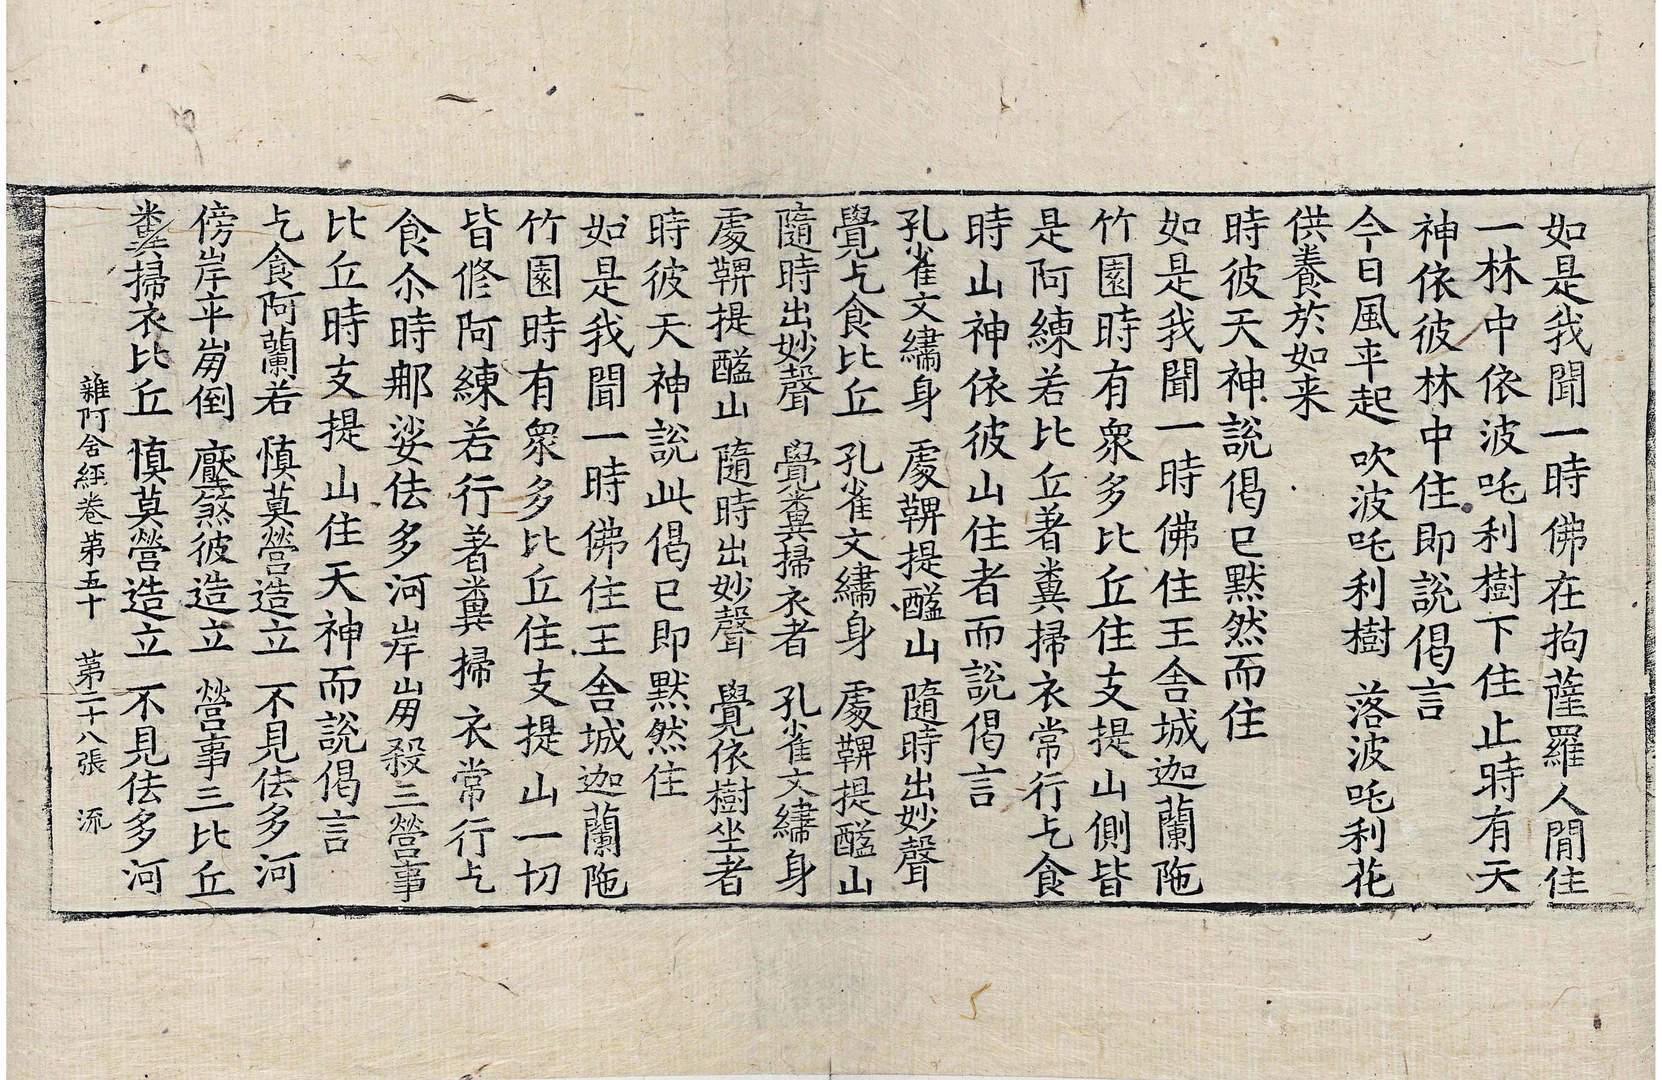 如是我聞一時佛在拘薩羅人閒住
一林中依波吒利樹下住止時有天
神依彼林中住即說偈言
今日風卒起 吹波吒利樹 落波吒利花
供養於如来
時彼天神說偈已默然而住
如是我聞一時佛住王舍城迦蘭陁
竹園時有衆多比丘住支提山側皆
是阿練若比丘著糞掃衣常行乞食
時山神依彼山住者而說偈言
孔雀文繡身 處鞞提醯山 隨時出妙聲
覺乞食比丘 孔雀文繡身 處鞞提醯山
隨時出妙聲 覺糞掃衣者 孔雀文繡身
處鞞提醯山 隨時出妙聲 覺依樹坐者
時彼天神說此偈已即默然住
如是我聞一時佛住王舍城迦蘭陁
竹園時有衆多比丘住支提山一切
皆修阿練若行著糞掃衣常行乞
食尒時那娑佉多河岸崩殺三營事
比丘時支提山住天神而說偈言
乞食阿蘭若 慎莫營造立 不見佉多河
傍岸卒崩倒 壓煞彼造立 營事三比丘
糞掃衣比丘 慎莫營造立 不見佉多河
雜阿含經卷第五十 第二十八張 流